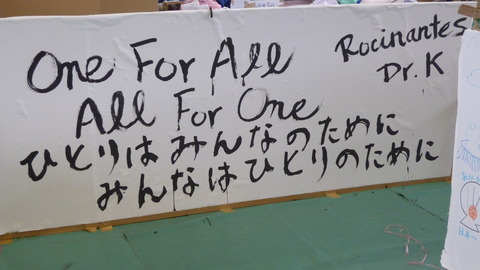 One For All
All For One
ひとりはみんなのために
みんなはひとりのために
Rocinantes
Dr. K